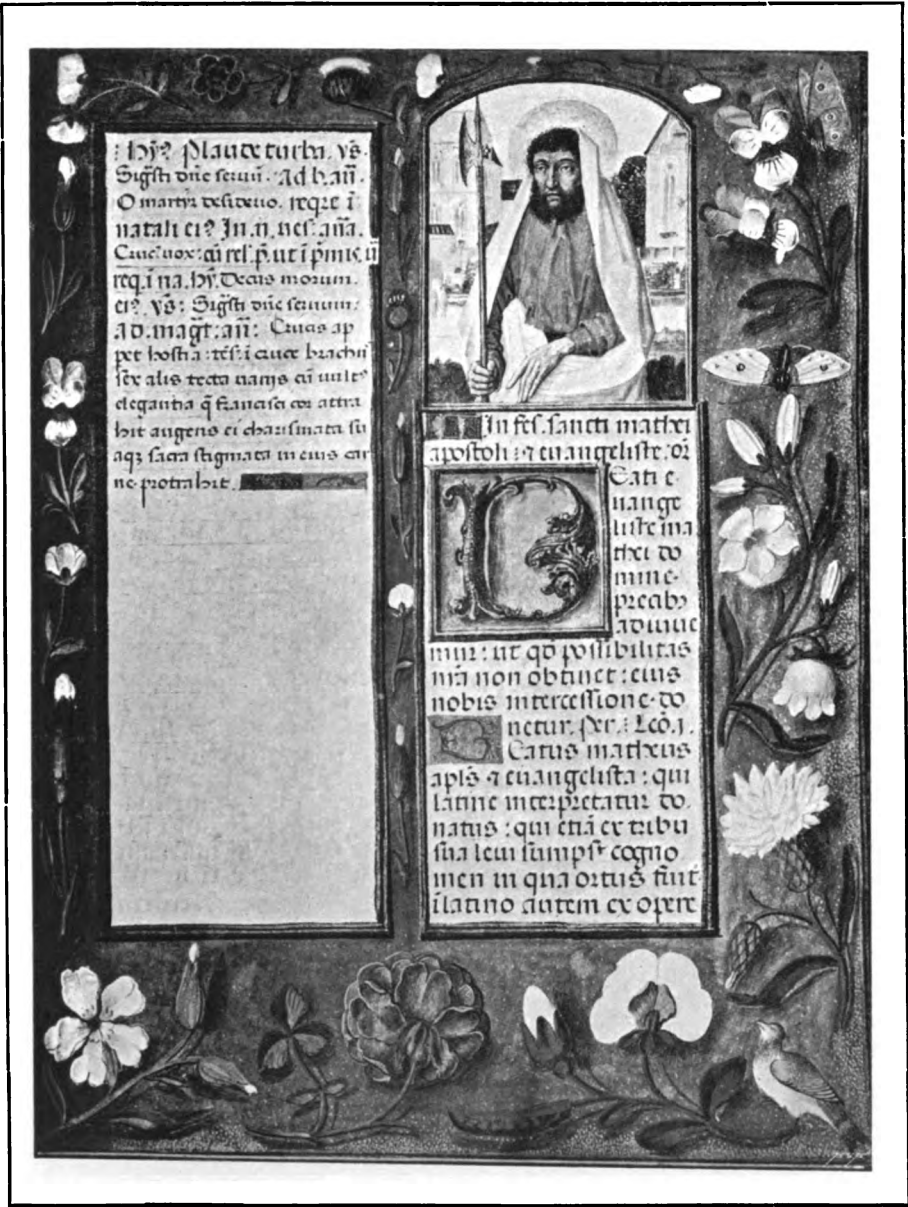 : hȳ? Plaude turba. v̄s.
Sigsti dn̄e seruū. ad b. an̄.
O martyr desiderio. reqre ī
natali ei? In. n. ues: an̄a.
Crucis uox: cū rel. p̄. ut ī p̄mis. ū
req. ī na. hȳ. Decus morum.
ei? v̄s: Sigsti dn̄e seruum.
ad. magt̄: an̄: Crucis ap
pet hostia: tēs: ī cruce brachiis
sex alis tecta uarijs cū uult⁹
elegantia q̄ francisci cor attra
hit augens ei charismata su
aq₃ sacra stigmata in eius car
ne protrahit.
In fes. sancti mathei
apostoli: ⁊ euangeliste. or̄
Beati e
uange
liste ma
thei do
mine
precib₃
adiuue
mur: ut qd̄ possibilitas
nr̄a non obtinet: eius
nobis intercessione do
netur. Per. : Lcō. j.
Beatus matheus
apl̄s ⁊ euangelista: qui
latine interpretatur do
natus: qui etiā ex tribu
sua leui sumpsͭ cogno
men in qua ortus fuit
ī latino autem ex opere